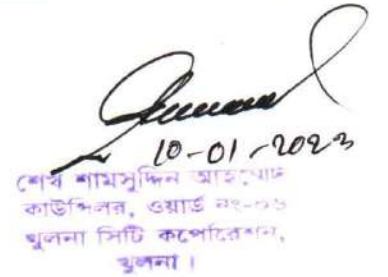 10-01-2023
শেখ শামসুদ্দিন
কাউন্সিলর, ওয়ার্ড নং-
খুলনা সিটি কর্পোরেশন,
খুলনা।